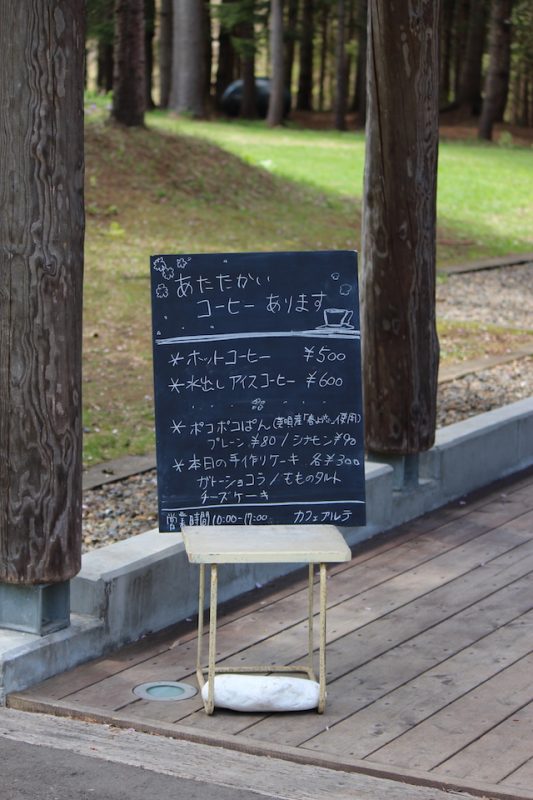 あたたかい
コーヒー あります
＊ホットコーヒー ¥500
＊水出しアイスコーヒー ¥600
＊ポコポコぱん(美唄産「春よ恋」使用)
プレーン ¥80 / シナモン ¥90
＊本日の手作りケーキ 各¥300
ガトーショコラ / もものタルト
チーズケーキ
営業時間 10:00-17:00 カフェアルテ